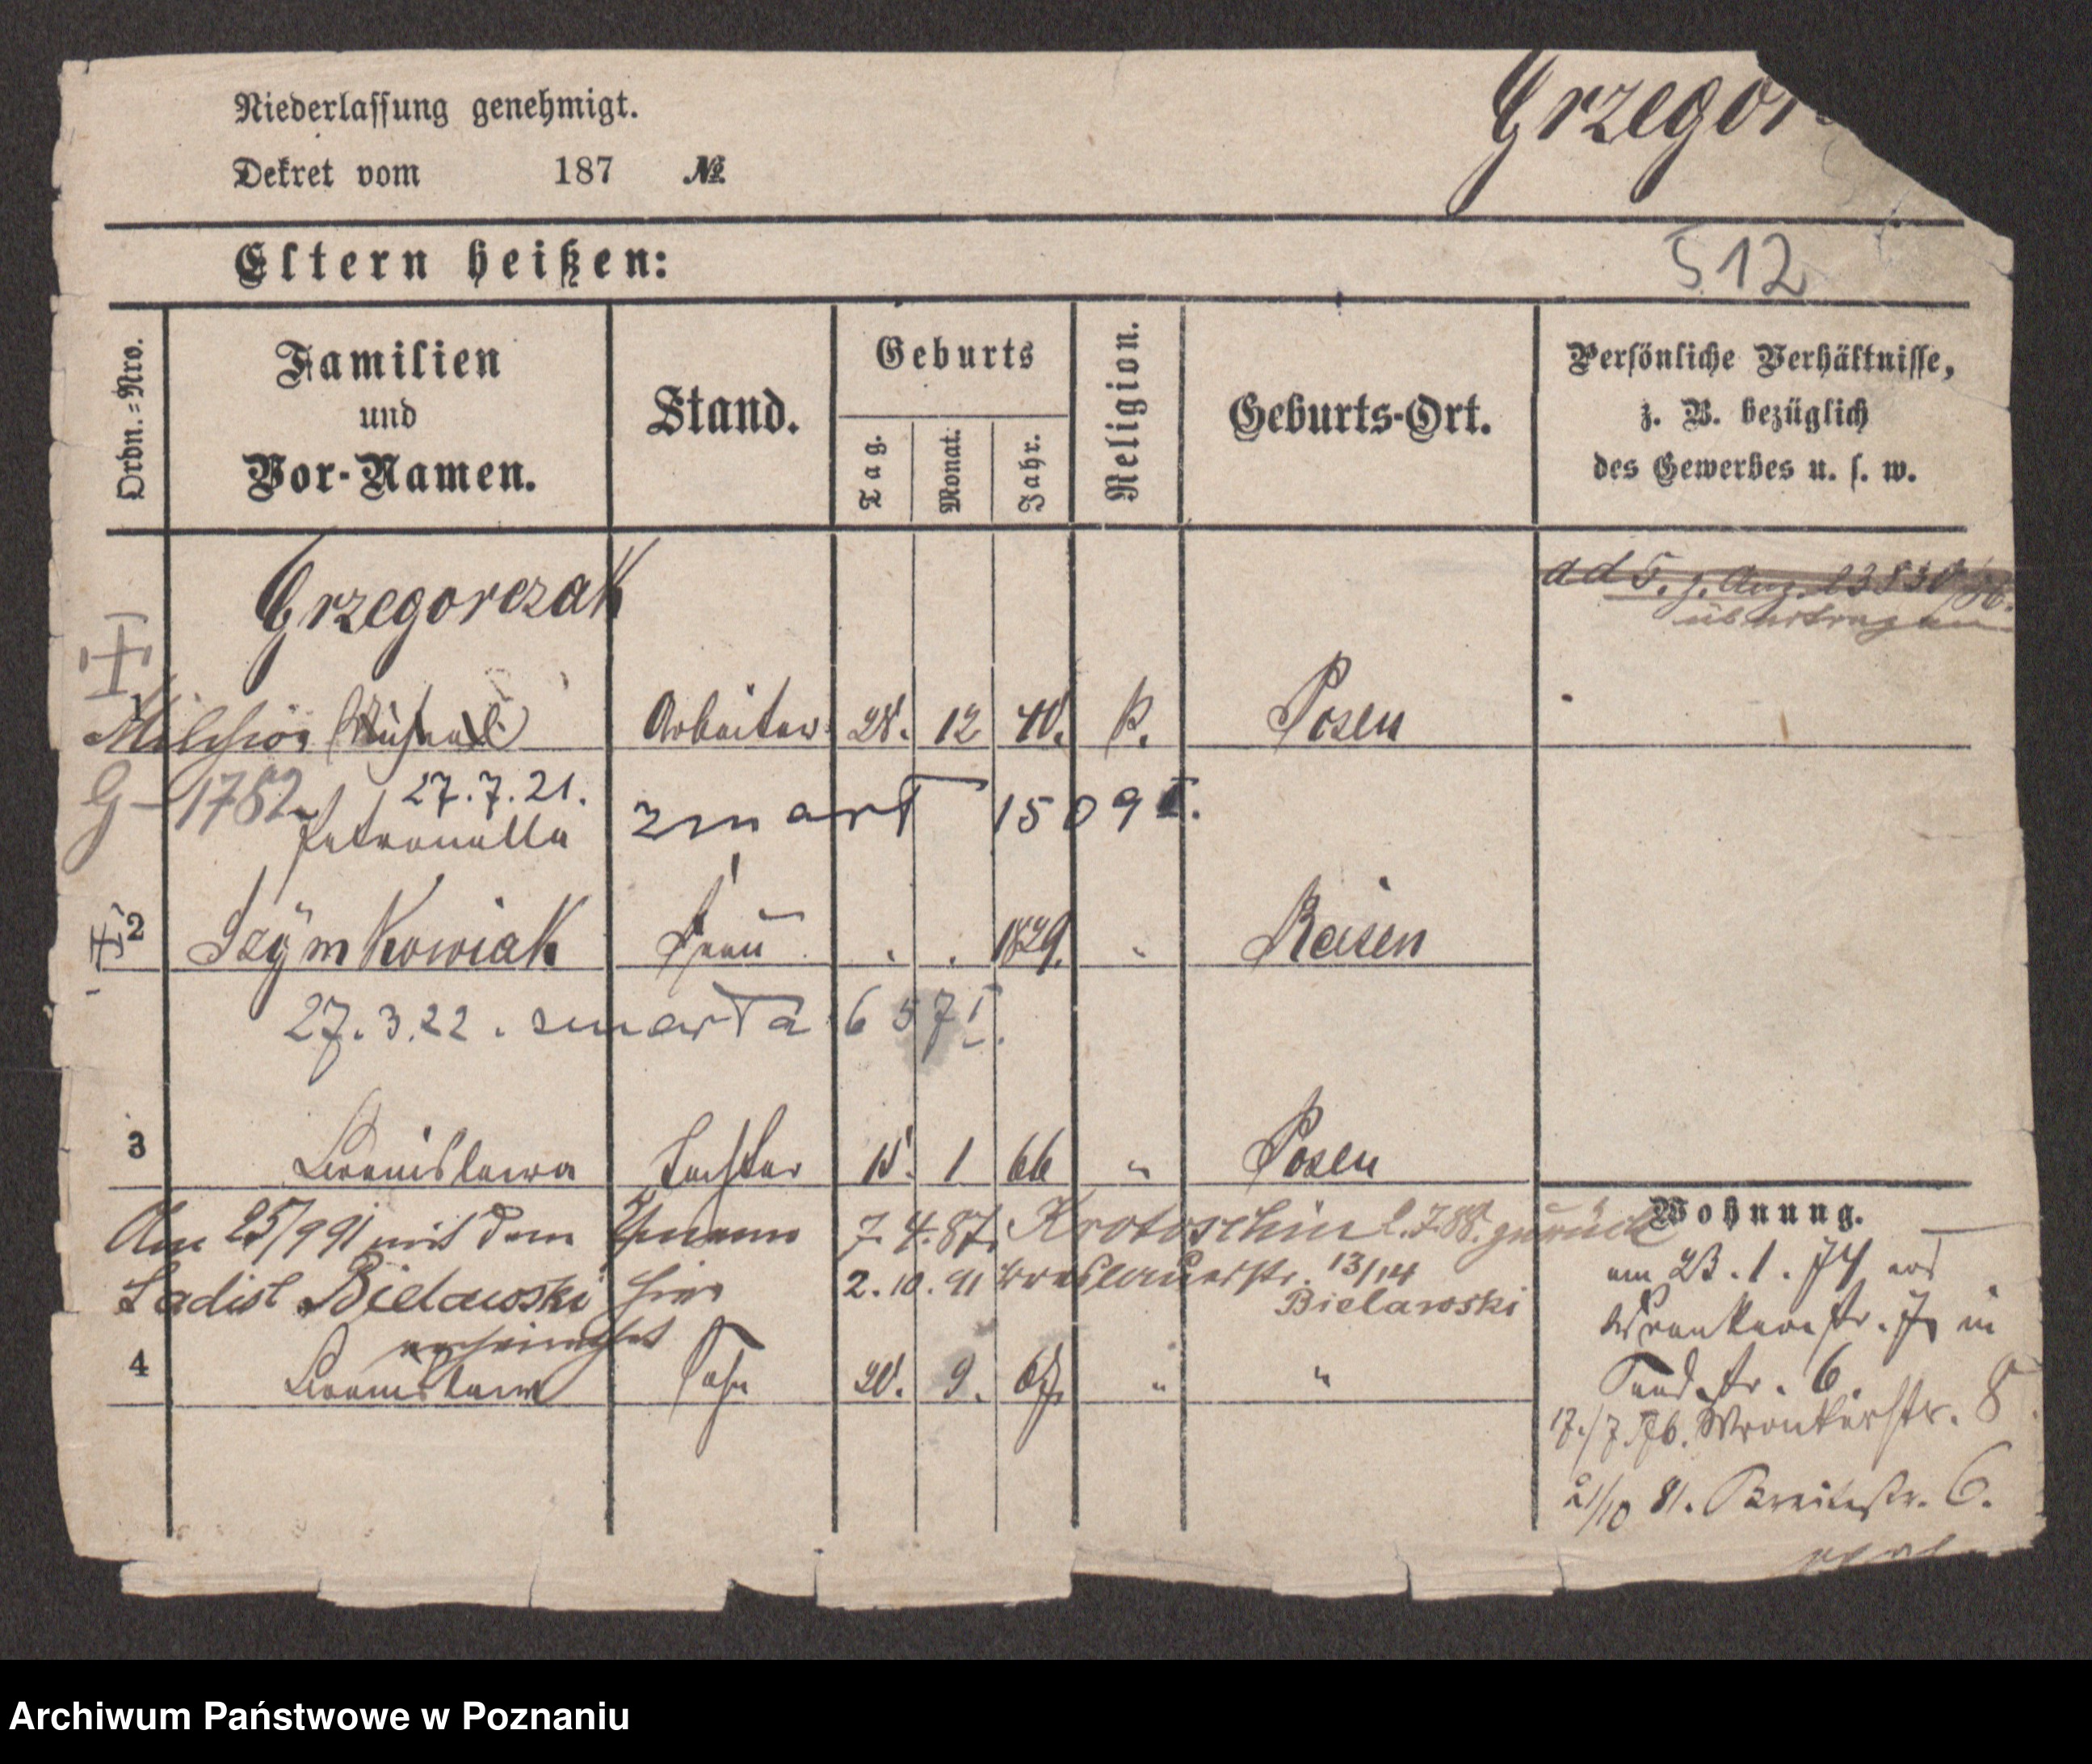 Niederlassung genehmigt.
Grzegor
Dekret vom 187 №
Eltern heißen:
512
Ordn.=Nro.
Familien
und
Vor-Namen.
Stand.
Geburts
Tag.
Monat.
Jahr.
Religion.
Geburts-Ort.
Persönliche Verhältnisse,
z. B. bezüglich
des Gewerbes u. s. w.
Grzegorczak
übertragen
1 Melchior Arbeiter 28. 12 40. k. Posen
G-1762 27.7.21. zmarł 1509 I.
Petronella
2 Szÿmkowiak Frau . . 1829. " Reisen
27.3.22. zmarła 657 I.
3 Bronislawa Tochter 15. 1 66 " Posen
Am 25/9 91 mit dem Ehemann 7. 4. 87. Krotoschin 2.7.88. zurück
Ladisl Bielawski hier 2. 10. 91 Breslauerstr. 13/14
Bielawski
4 Bronislaw Sohn 20. 9. 67 " "
Wohnung.
am 23. 1. 74 von
Wronkerstr. 7 in
Sandstr. 6.
17./7.76. Wronkerstr. 8.
21/10 81. Breitestr. 6.